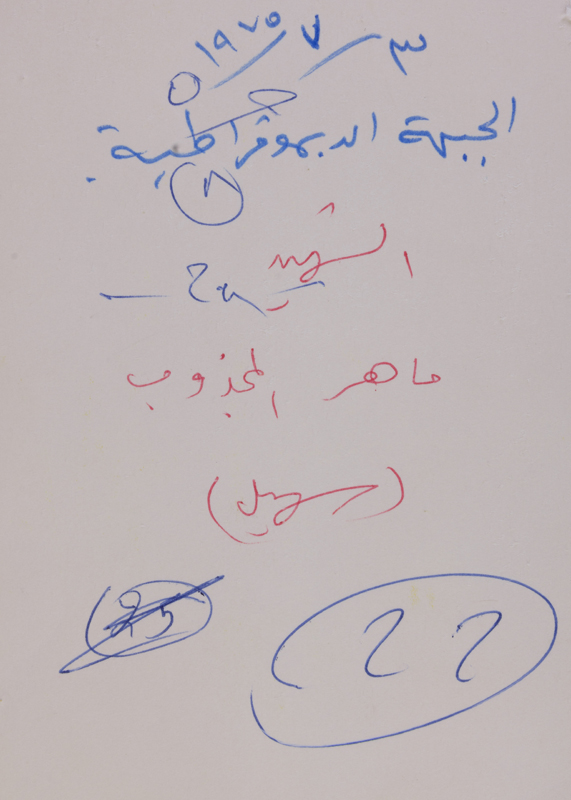 ٣ / ٧ / ١٩٧٥
الجبهة الديموقراطية
٨
الشهيد
ماهر المجذوب
(سهيل)
25
22